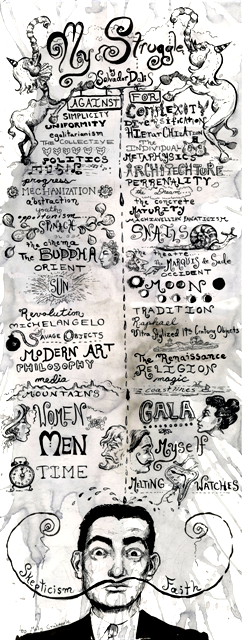 My Struggle,
by Salvador Dali
AGAINST
SIMPLICITY
UNIFORMITY
egalitarianism
THE COLLECTIVE
POLITICS
MUSIC
progress
MECHANIZATION
abstraction
youth
opportunism
SPINACH
the cinema
The BUDDHA
ORIENT
the
SUN
Revolution
MICHELANGELO
SAVAGE OBJECTS
MODERN ART
PHILOSOPHY
media
MOUNTAINS
WOMEN
MEN
TIME
Skepticism
FOR
COMPLEXITY
DIVERSIFICATION
HIERARCHIZATION
THE INDIVIDUAL
METAPHYSICS
ARCHITECTURE
PERRENALITY
Dream
the concrete
MATURITY
MACHIAVELLIAN FANATICISM
SNAILS
the theatre
The MARQUIS de Sade
OCCIDENT
the
MOON
TRADITION
Raphael
Ultra Stylized 19th Century Objects
The Renaissance
RELIGION
magic
coastlines
GALA
Myself
MELTING WATCHES
Faith